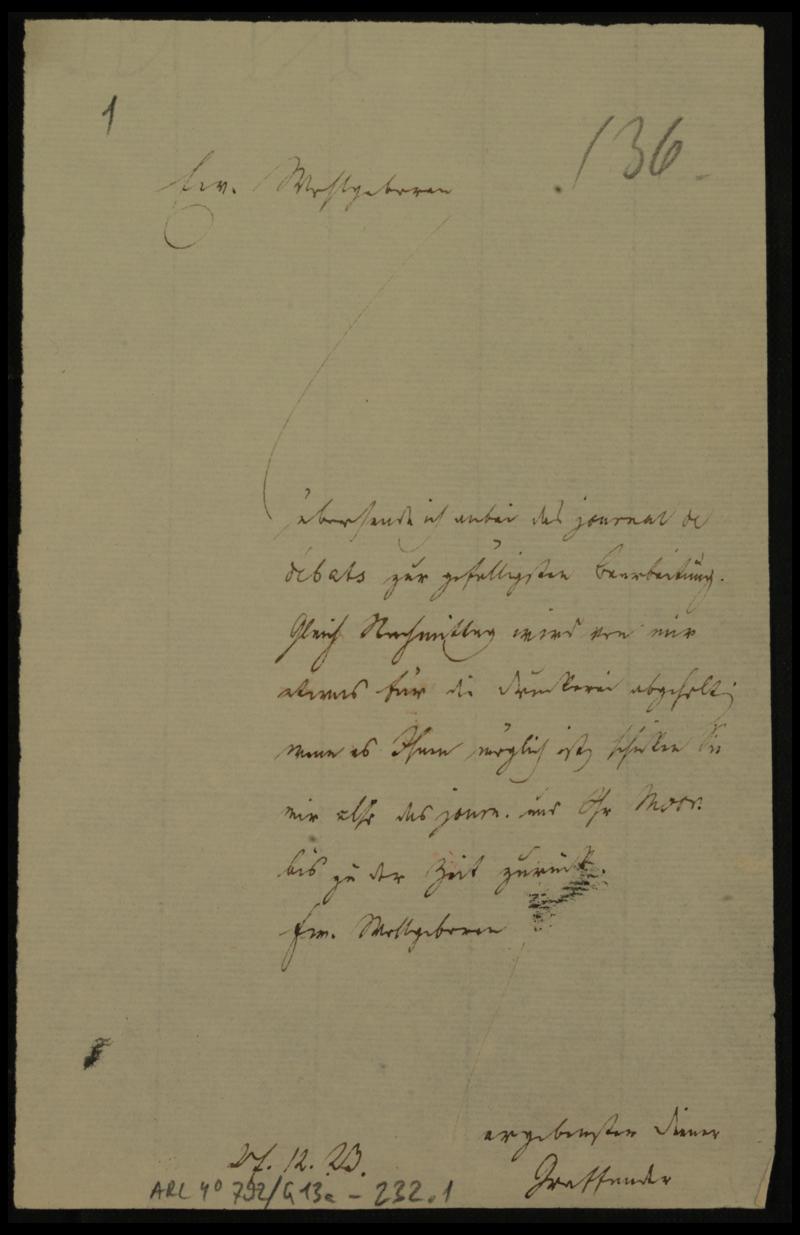 1
136
Ew. Wohlgeboren
übersende ich anbei das journal de
débats zur gefälligsten Bearbeitung.
Gleich Nachmittag wird von mir
etwas für die Druckerei abgeholt;
wenn es Ihnen möglich ist, schicken Sie
mir also das journ. und Ihr
bis zu der Zeit zurück.
Ew. Wohlgeboren
ergebenster Diener
27. 12. 23.
ARL 4° 792/G13a - 232.1